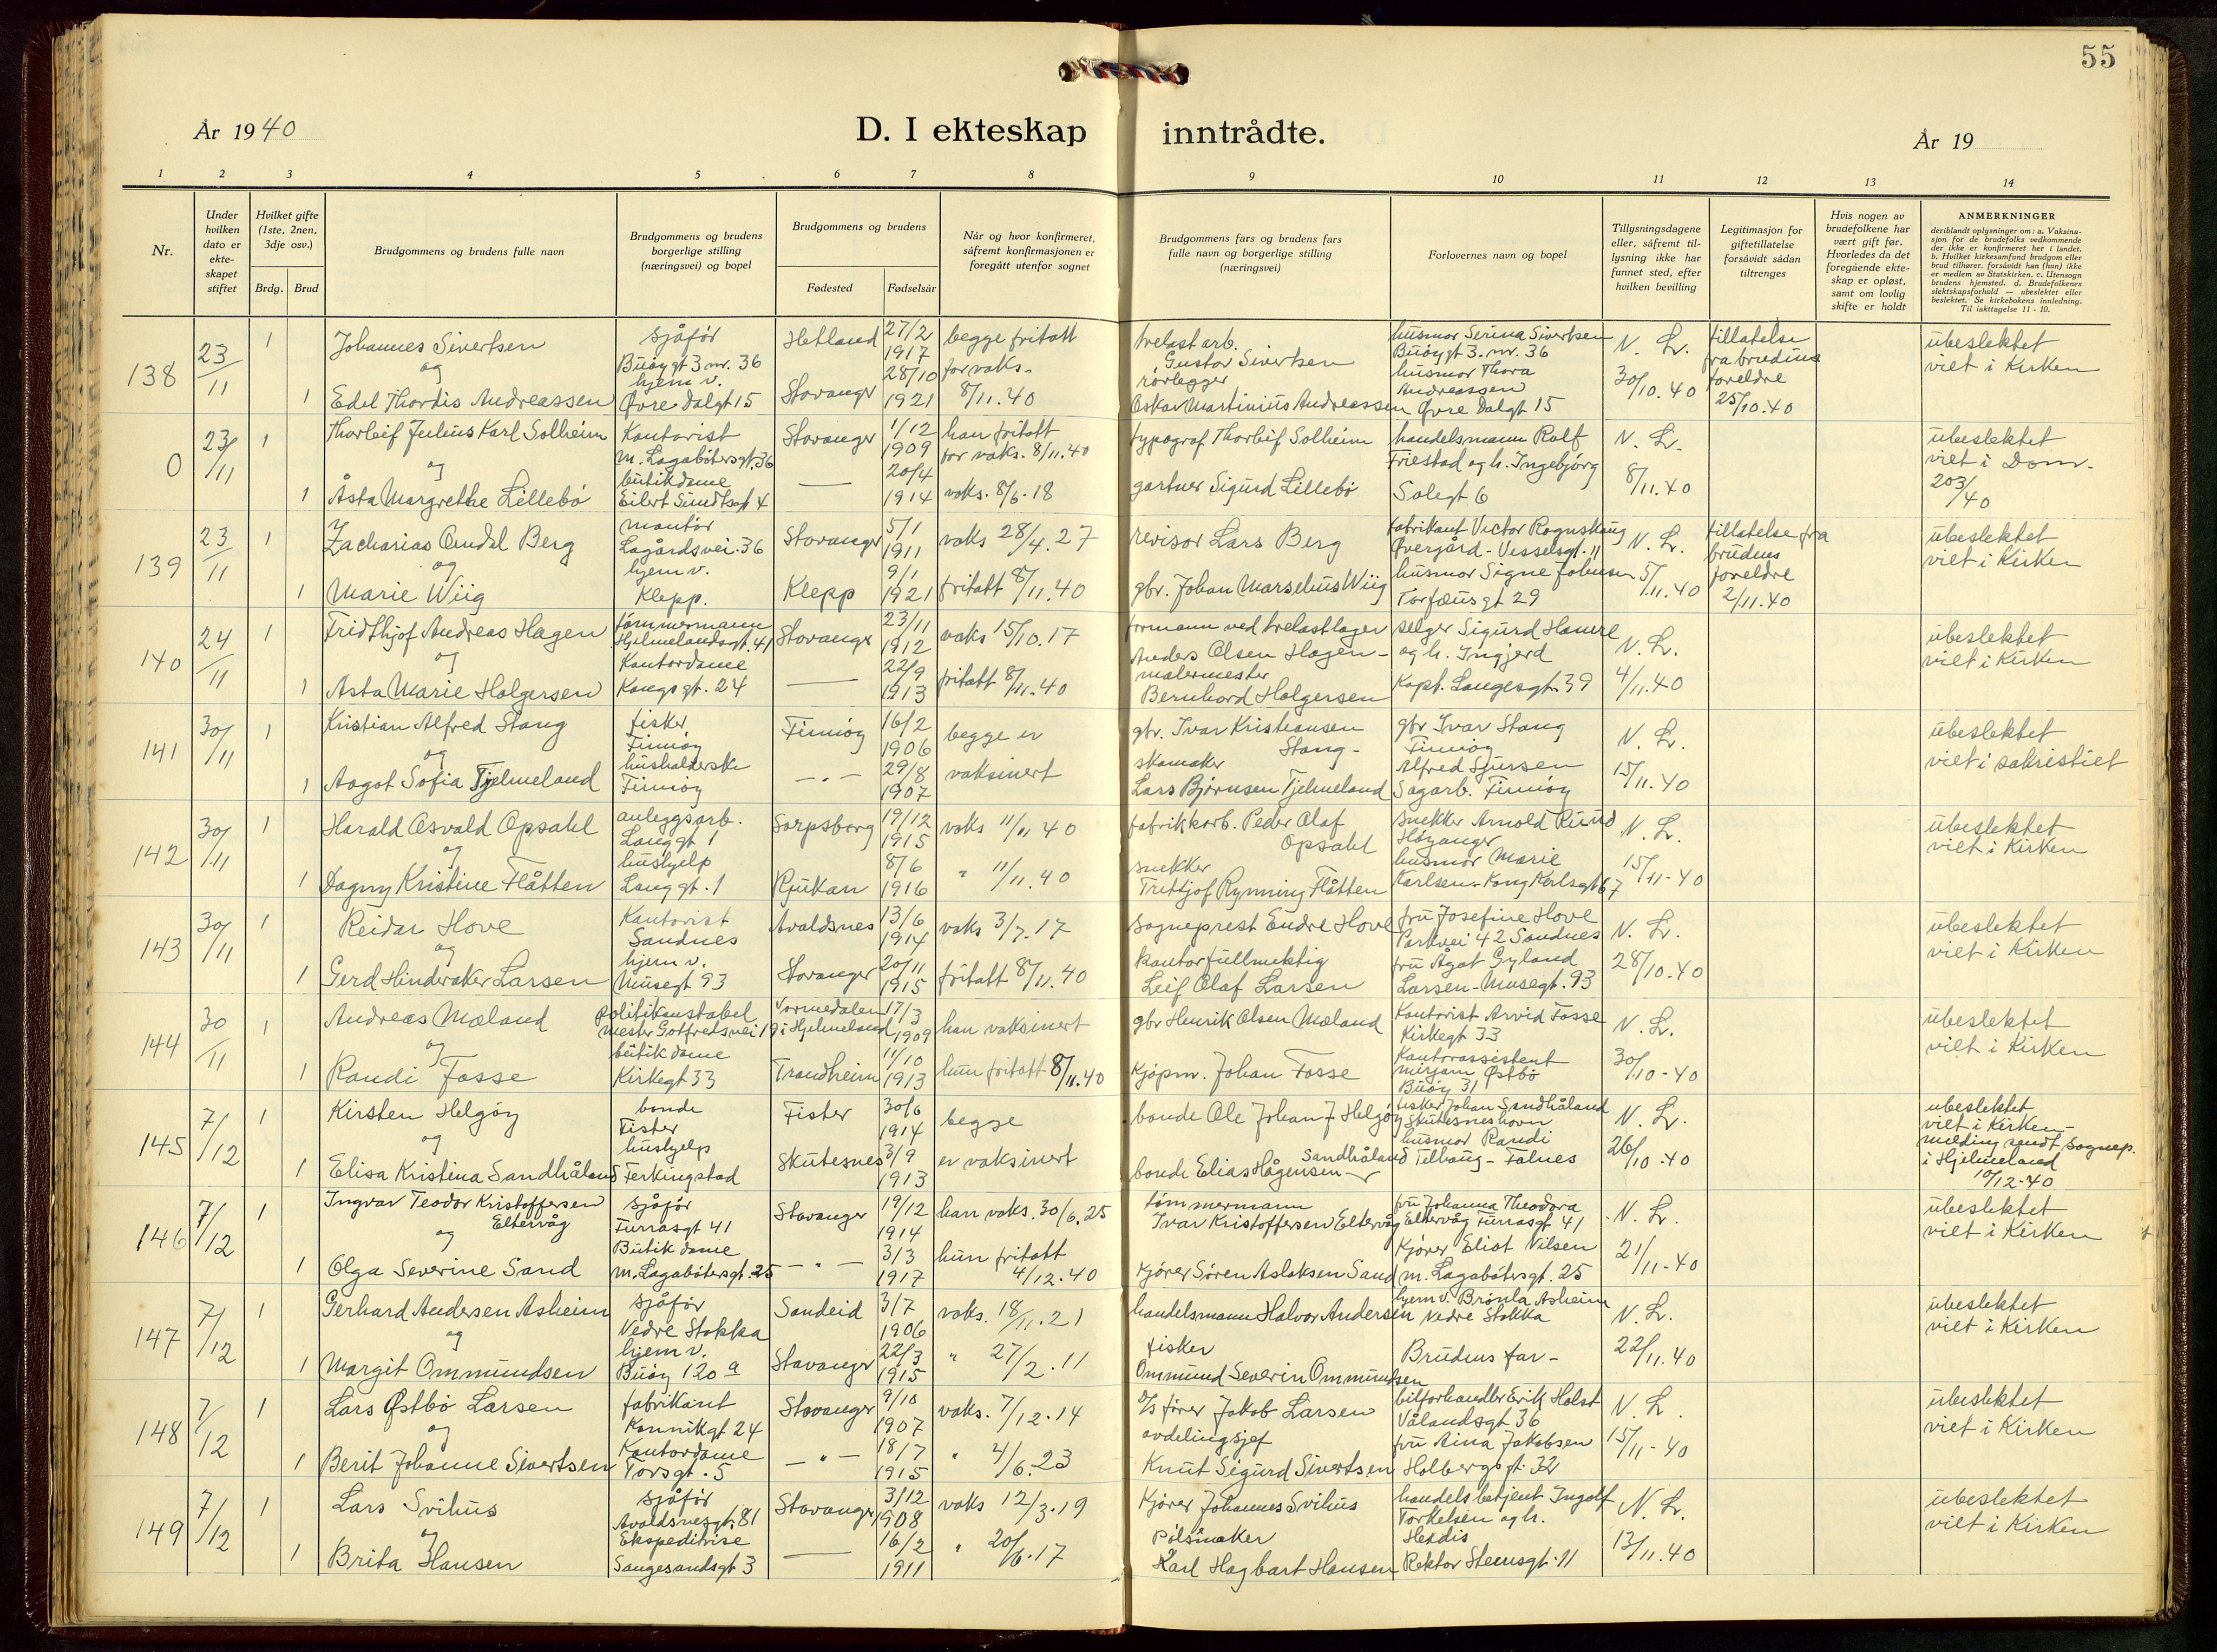 55
År 1940
D. I ekteskap inntrådte.
År 19
1 2 3 4 5 6 7 8 9 10 11 12 13 14
Nr.
Under hvilken dato er ekte-skapet stiftet
Hvilket gifte (1ste, 2nen, 3dje osv.)
Brdg. Brud
Brudgommens og brudens fulle navn
Brudgommens og brudens borgerlige stilling (næringsvei) og bopel
Brudgommens og brudens
Fødested Fødselsår
Når og hvor konfirmeret, såfremt konfirmasjonen er foregått utenfor sognet
Brudgommens fars og brudens fars fulle navn og borgerlige stilling (næringsvei)
Forlovernes navn og bopel
Tillysningsdagene eller, såfremt til-lysning ikke har funnet sted, efter hvilken bevilling
Legitimasjon for giftetillatelse forsåvidt sådan tiltrenges
Hvis nogen av brudefolkene har vært gift før. Hvorledes da det foregående ekte-skap er opløst, samt om lovlig skifte er holdt
ANMERKNINGER
deriblandt oplysninger om: a. Vaksina-sjon for de brudefolks vedkommende der ikke er konfirmeret her i landet. b. Hvilket kirkesamfund brudgom eller brud tilhører, forsåvidt han (hun) ikke er medlem av Statskirken. c. Utensogn brudens hjemsted. d. Brudefolkenes slektskapsforhold — ubeslektet eller beslektet. Se kirkebokens innledning. Til iakttagelse 11 - 10.
138 23/11 1 Johannes Sivertsen sjåfør Buøygt 3 nr. 36 Hetland 27/2 1917 begge fritatt trelastarb. Gustav Sivertsen husmor Serina Sivertsen Buøygt 3. nr. 36 N. L. tillatelse fra brudens foreldre 25/10.40 ubeslektet viet i Kirken
og
1 Edel Thordis Andreassen hjem v. Øvre Dalgt 15 Stavanger 28/10 1921 for vaks. 8/11.40 rørlegger Oskar Martinius Andreassen husmor Thora Andreassen Øvre Dalgt 15 30/10.40
0 23/11 1 Thorleif Julius Karl Solheim Kontorist M. Lagabøtersgt. 36 Stavanger 1/12 1909 han fritatt for vaks. 8/11.40 typograf Thorleif Solheim handelsmann Rolf Friestad og h. Ingebjørg N. L. ubeslektet viet i Dom.
og
1 Åsta Margrethe Lillebø butikdame Eilert Sundtsgt 4 — 20/4 1914 vaks. 8/6.18 gartner Sigurd Lillebø Solegt 6 8/11.40 203/40
139 23/11 1 Zacharias Omdal Berg montør Lagårdsvei. 36 Stavanger 5/1 1911 vaks 28/4.27 revisor Lars Berg fabrikant Victor Rognskaug Øvergård - Vesselsgt. 11 N. L. tillatelse fra brudens foreldre 2/11.40 ubeslektet viet i Kirken
og
1 Marie Wiig hjem v. Klepp. Klepp 9/1 1921 fritatt 8/11.40 gbr. Johan Marselius Wiig husmor Signe Johnsen Torfæusgt 29 5/11.40
140 24/11 1 Fridthjof Andreas Hagen tømmermann Hjelmelandsgt. 41 Stavanger 23/11 1912 vaks 15/10.17 formann ved trelastlager Anders Olsen Hagen - selger Sigurd Hamre og h. Ingjerd N. L. ubeslektet viet i Kirken
og
1 Asta Marie Holgersen Kontordame Kongsgt. 24 — 22/9 1913 fritatt 8/11.40 malermester Bernhard Holgersen Kapt. Langesgt. 39 4/11.40
141 30/11 1 Kristian Alfred Stang fisker Finnøy Finnøy 16/2 1906 begge er gbr. Ivar Kristiansen Stang - gbr Ivar Stang Finnøy N. L. ubeslektet viet i sakristiet
og
1 Aagot Sofia Tjelmeland husholderske Finnøy — " — 29/8 1907 vaksinert skomaker Lars Bjørnsen Tjelmeland Alfred Sjursen Sagarb. Finnøy 15/11.40
142 30/11 1 Harald Osvald Opsahl anleggsarb. Langgt 1 Sarpsborg 19/12 1915 vaks 11/11 40 fabrikkarb. Peder Olaf Opsahl snekker Arnold Ruud Høyanger N. L. ubeslektet viet i Kirken
og
1 Dagny Kristine Flåtten hushjelp Langgt. 1 Rjukan 8/6 1916 " 11/11.40 snekker Tritjof Rynning Flåtten husmor Marie Karlsen - Kong Karlsgt 67 15/11-40
143 30/11 1 Reidar Hove Kontorist Sandnes Avaldsnes 13/6 1914 vaks 3/7.17 sogneprest Endre Hove fru Josefine Hove Parkvei 42 Sandnes N. L. ubeslektet viet i Kirken
og
1 Gerd Hinderaker Larsen hjem v. Musegt 93 Stavanger 20/11 1915 fritatt 8/11.40 kontorfullmektig Leif Olaf Larsen fru Ågot Gyland Larsen - Musegt. 93 28/10.40
144 30/11 1 Andreas Mæland politikonstabel mester Gotfredsvei 19 Vormedalen i Hjelmeland 17/3 1909 han vaksinert gbr Henrik Olsen Mæland Kontorist Arvid Fosse Kirkegt 33 N. L. ubeslektet viet i Kirken
og
1 Randi Fosse butikdame Kirkegt 33 Trondheim 11/10 1913 hun fritatt 8/11.40 kjøpm. Johan Fosse Kontorassistent Mirjam Østbø Buøy 31 30/10-40
145 7/12 1 Kirsten Helgøy bonde Fister Fister 30/6 1914 begge bonde Ole Johan J Helgøy fisker Johan Sandhåland Skutesneshavn N. L. ubeslektet viet i Kirken - melding sendt sognep. i Hjelmeland 10/12-40
og
1 Elisa Kristina Sandhåland hushjelp Ferkingstad Skutesnes 3/9 1913 er vaksinert bonde Elias Hågensen Sandhåland husmor Randi Telhaug - Falnes 26/10-40
146 7/12 1 Ingvar Teodor Kristoffersen Eltervåg sjåfør Furrasgt 41 Stavanger 19/12 1914 han vaks. 30/6.25 tømmermann Ivar Kristoffersen Eltervåg fru Johanna Theodora Eltervåg Furrasgt. 41 N. L. ubeslektet viet i Kirken
og
1 Olga Severine Sand Butikdame M. Lagabøtersgt. 25 — " — 3/3 1917 hun fritatt 4/12.40 kjører Søren Aslaksen Sand Kjører Eliot Nilsen M. Lagabøtersgt. 25 21/11-40
147 7/12 1 Gerhard Andersen Asheim sjåfør Nedre Stokka Sandeid 3/7 1906 vaks. 18/11.21 handelsmann Halvor Andersen hjem v. Brønla Asheim Nedre Stokka N. L. ubeslektet viet i Kirken
og
1 Margit Ommundsen hjem v. Buøy 120 a Stavanger 22/3 1915 " 27/2.11 fisker Ommund Severin Ommundsen Brudens far - 22/11.40
148 7/12 1 Lars Østbø Larsen fabrikant Kannikgt 24 Stavanger 9/10 1907 vaks. 7/12.14 D/S fører Jakob Larsen bilforhandler Erik Holst Vålandsgt 36 N. L. ubeslektet viet i Kirken
og
1 Berit Johanne Sivertsen Kontordame Torsgt. 5 — " — 18/7 1915 " 4/6.23 avdelingsjef Knut Sigurd Sivertsen fru Aina Jakobsen Holbergsgt. 32 15/11-40
149 7/12 1 Lars Svihus sjåfør Avaldsnesgt. 81 Stavanger 3/12 1908 vaks 12/3.19 Kjører Johannes Svihus handelsbetjent Ingolf Torkelsen og h. Heddis N. L. ubeslektet viet i Kirken
og
1 Brita Hansen Ekspeditrise Sangesandsgt 3 — 16/2 1911 " 20/6.17 pølsmaker Karl Hagbart Hansen Rektor Steensgt. 11 13/11.40